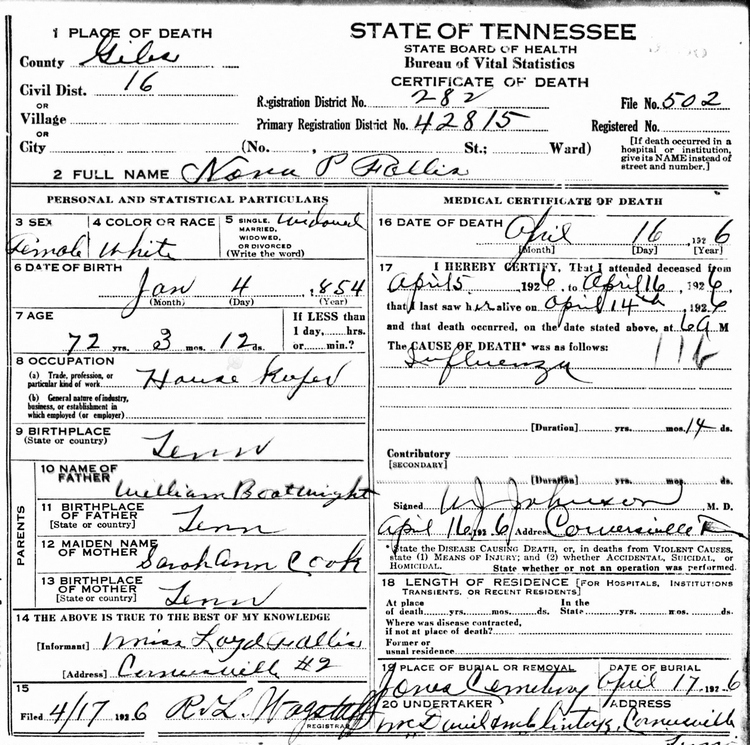 STATE OF TENNESSEE
STATE BOARD OF HEALTH
Bureau of Vital Statistics
CERTIFICATE OF DEATH
1 PLACE OF DEATH
County Giles
Civil Dist. 16
OR
Village
OR
City (No. , St.; Ward)
Registration District No. 282 File No. 502
Primary Registration District No. 42815 Registered No.
[If death occurred in a hospital or institution, give its NAME instead of street and number.]
2 FULL NAME Nova P Fallis
PERSONAL AND STATISTICAL PARTICULARS
3 SEX Female
4 COLOR OR RACE White
5 SINGLE, MARRIED, WIDOWED, OR DIVORCED (Write the word) Widowed
6 DATE OF BIRTH
Jan 4 1854
(Month) (Day) (Year)
7 AGE
72 yrs. 3 mos. 12 ds.
If LESS than
1 day, hrs.
or min.?
8 OCCUPATION
(a) Trade, profession, or particular kind of work. House Keeper
(b) General nature of industry, business, or establishment in which employed (or employer)
9 BIRTHPLACE
(State or country) Tenn
PARENTS
10 NAME OF FATHER William Boatwright
11 BIRTHPLACE OF FATHER
[State or country] Tenn
12 MAIDEN NAME OF MOTHER Sarah Ann Cook
13 BIRTHPLACE OF MOTHER
[State or country] Tenn
14 THE ABOVE IS TRUE TO THE BEST OF MY KNOWLEDGE
[Informant] Miss Loyd Fallis
[Address] Cornersville #2
15
Filed 4/17 1926 R. L. Wagstaff
REGISTRAR
MEDICAL CERTIFICATE OF DEATH
16 DATE OF DEATH April 16 1926
[Month] [Day] [Year]
17 I HEREBY CERTIFY, That I attended deceased from
April 5 1926, to April 16, 1926,
that I last saw her alive on April 14th 1926
and that death occurred, on the date stated above, at 6 a M
The CAUSE OF DEATH* was as follows:
Influenza 11b
[Duration] yrs. mos. 14 ds.
Contributory
[SECONDARY]
[Duration] yrs. mos. ds.
Signed W J Johnson M. D.
April 16, 1926 Address Cornersville
*State the DISEASE CAUSING DEATH, or, in deaths from VIOLENT CAUSES, state (1) MEANS OF INJURY; and (2) whether ACCIDENTAL, SUICIDAL, or HOMICIDAL. State whether or not an operation was performed.
18 LENGTH OF RESIDENCE [FOR HOSPITALS, INSTITUTIONS TRANSIENTS, OR RECENT RESIDENTS]
At place of death. yrs. mos. ds. In the State yrs. mos. ds.
Where was disease contracted, if not at place of death?
Former or usual residence
19 PLACE OF BURIAL OR REMOVAL DATE OF BURIAL
Jones Cemetery April 17, 1926
20 UNDERTAKER ADDRESS
McDaniel & McClintock, Cornersville